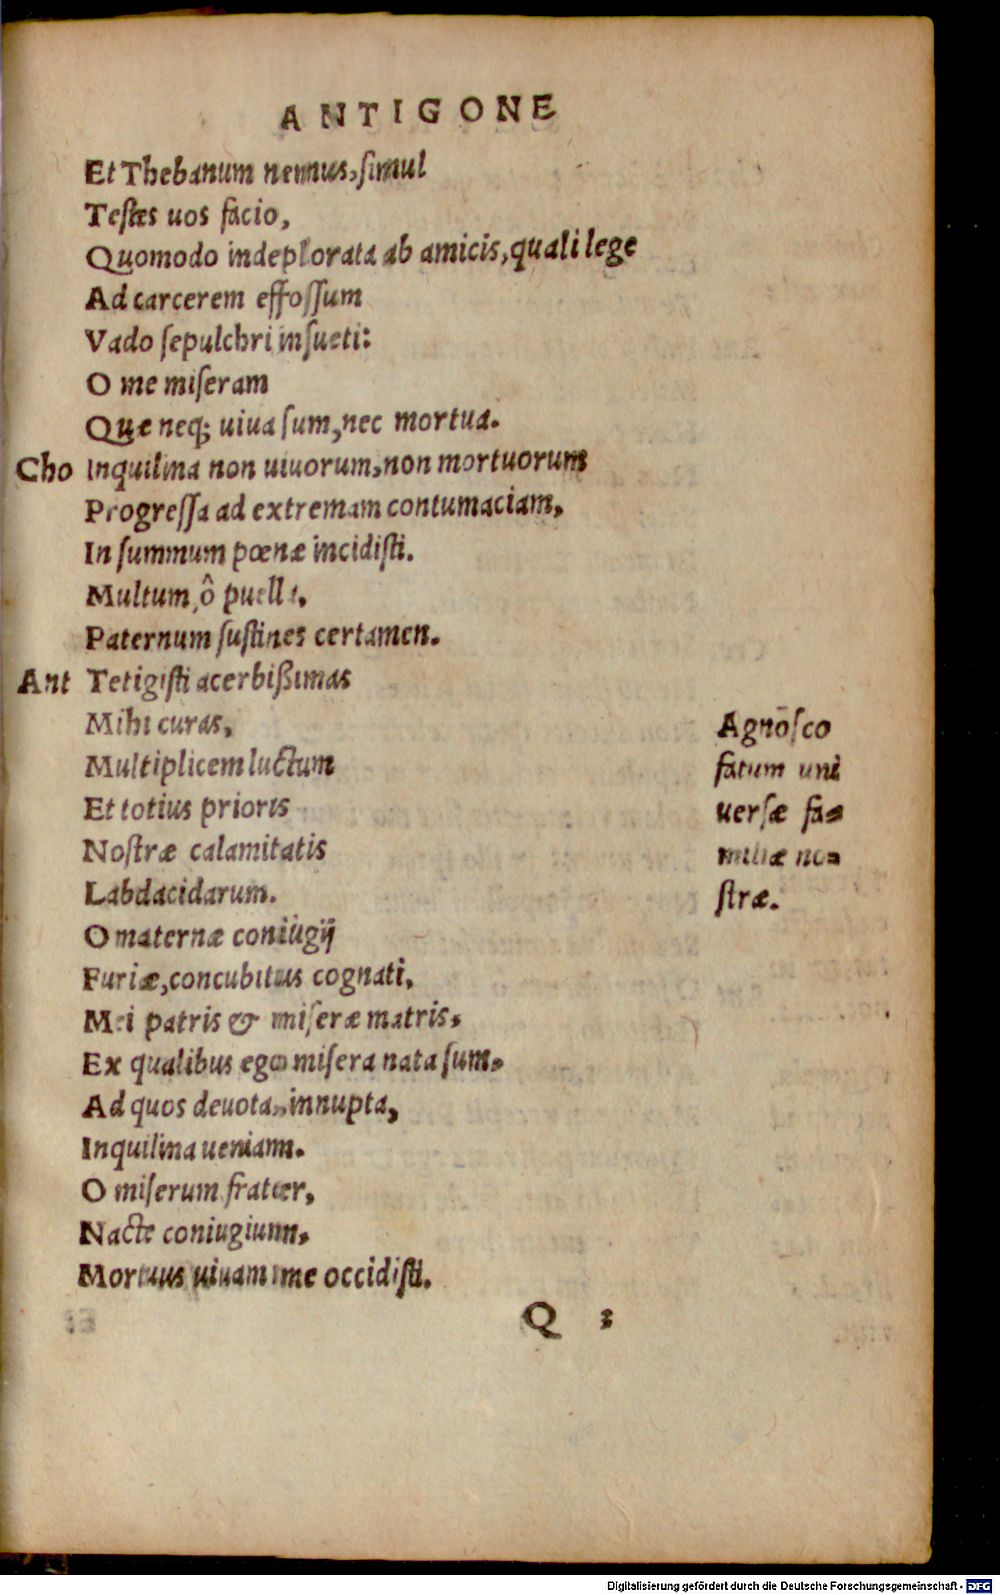 ANTIGONE
Et Thebanum nemus, simul
Testes uos facio,
Quomodo indeplorata ab amicis, quali lege
Ad carcerem effoſſum
Vado ſepulchri inſueti:
O me miſeram
Quæ neq; uiua ſum, nec mortua.
Cho Inquilina non uiuorum, non mortuorum
Progreſſa ad extremam contumaciam,
In ſummum pœnæ incidiſti.
Multum, ô puella,
Paternum ſuſtines certamen.
Ant Tetigiſti acerbißimas
Mihi curas,
Multiplicem luctum
Et totius prioris
Noſtræ calamitatis
Labdacidarum.
O maternæ coniugij
Furiæ, concubitus cognati,
Mei patris & miſeræ matris,
Ex qualibus ego miſera nata ſum,
Ad quos deuota, innupta,
Inquilina ueniam.
O miſerum frater,
Nacte coniugium,
Mortuus uiuam me occidiſti.
Agnoſco
fatum uni
uerſæ fa-
miliæ no-
ſtræ.
Q 2
Digitalisierung gefördert durch die Deutsche Forschungsgemeinschaft - DFG